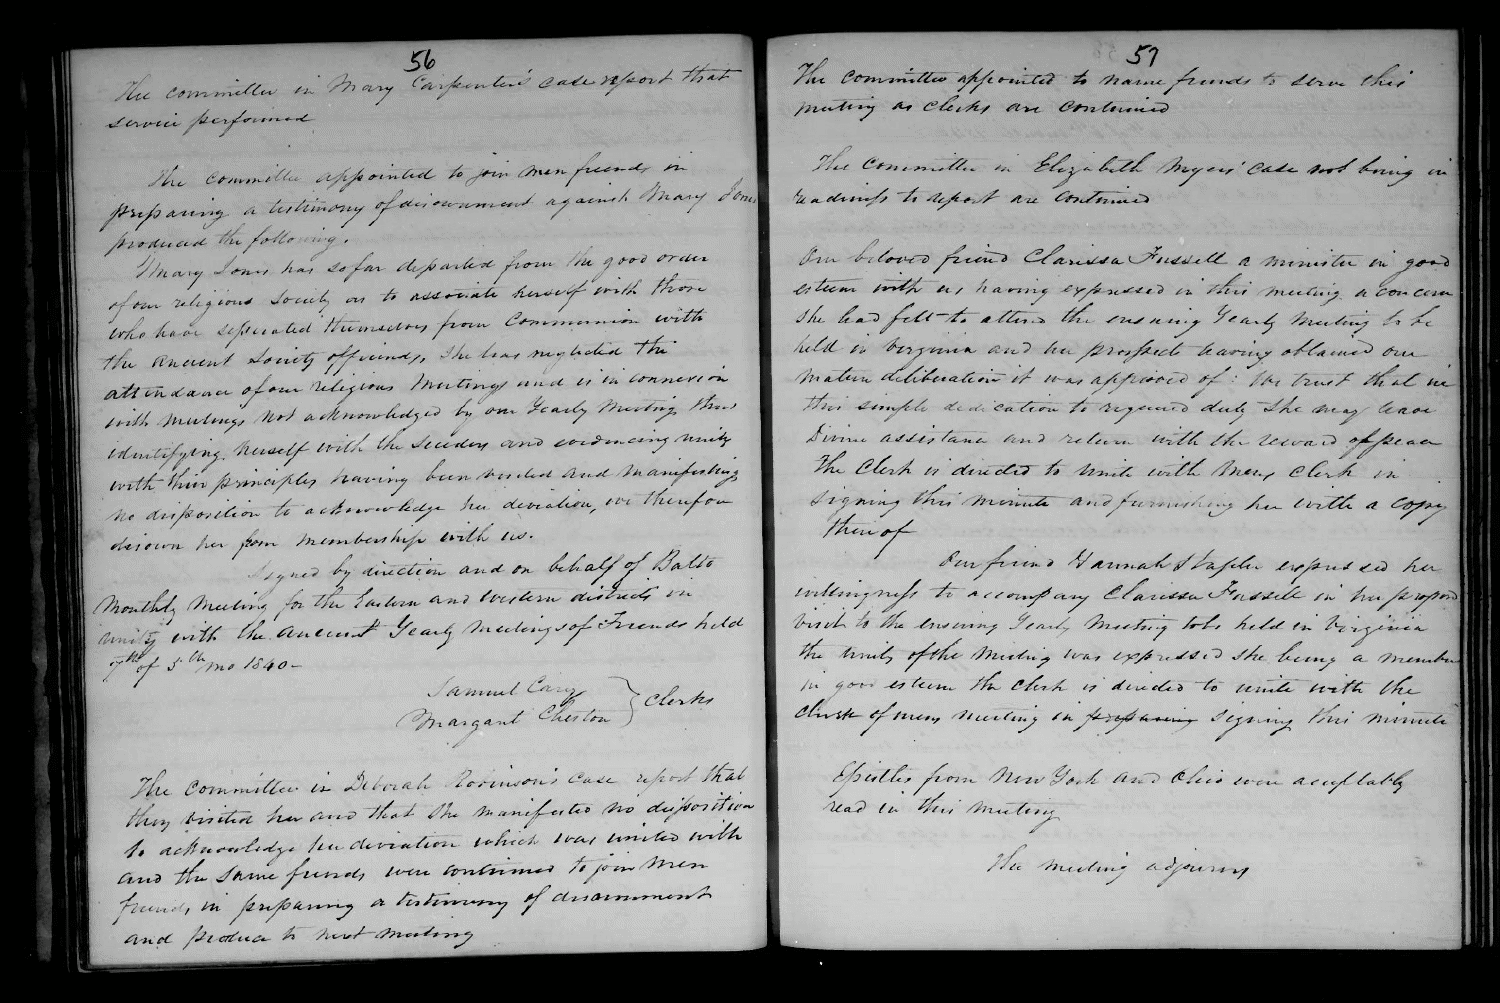 56
The committee in Mary Carpenter's case report that
service performed
The committee appointed to join men friends in
preparing a testimony of disownment against Mary Jones
produced the following.
Mary Jones has so far departed from the good order
of our religious Society as to associate herself with those
who have seperated themselves from Communion with
the ancient Society of friends, She has neglected the
attendance of our religious Meetings and is in connexion
with meetings not acknowledged by our Yearly Meeting, thus
identifying herself with the Seceders and evidencing unity
with their principles having been visited and manifesting
no disposition to acknowledge her deviation, we therefore
disown her from membership with us.
Signed by direction and on behalf of Balto
Monthly Meeting for the Eastern and Western districts in
unity with the ancient Yearly Meetings of Friends held
7th of 5th mo 1840-
Samuel Carey
Margaret Cheston } Clerks
The Committee in Deborah Robinson's case report that
they visited her and that She manifested no disposition
to acknowledge her deviation which was united with
and the Same friends were continued to join Men
friends in preparing a testimony of disownment
and produce to next meeting
57
The committee appointed to name friends to serve this
meeting as Clerks are continued
The Committee in Elizabeth Myers' Case not being in
readiness to report are continued
Our beloved friend Clarissa Fussell a minister in good
esteem with us, having expressed in this meeting a concern
She had felt to attend the ensuing Yearly Meeting to be
held in Virginia and her prospect having obtained our
mature deliberation it was approved of: We trust that in
this simple dedication to required duty She may have
Divine assistance and return with the reward of peace
The Clerk is directed to unite with Mens Clerk in
signing this minute and furnishing her with a copy
thereof
Our friend Hannah Stapler expressed her
willingness to accompany Clarissa Fussell in her proposed
visit to the ensuing Yearly Meeting to be held in Virginia
the unity of the Meeting was expressed She being a member
in good esteem the Clerk is directed to unite with the
Clerk of mens meeting in preparing signing this minute
Epistles from New York and Ohio were acceptably
read in this meeting
The meeting adjourns